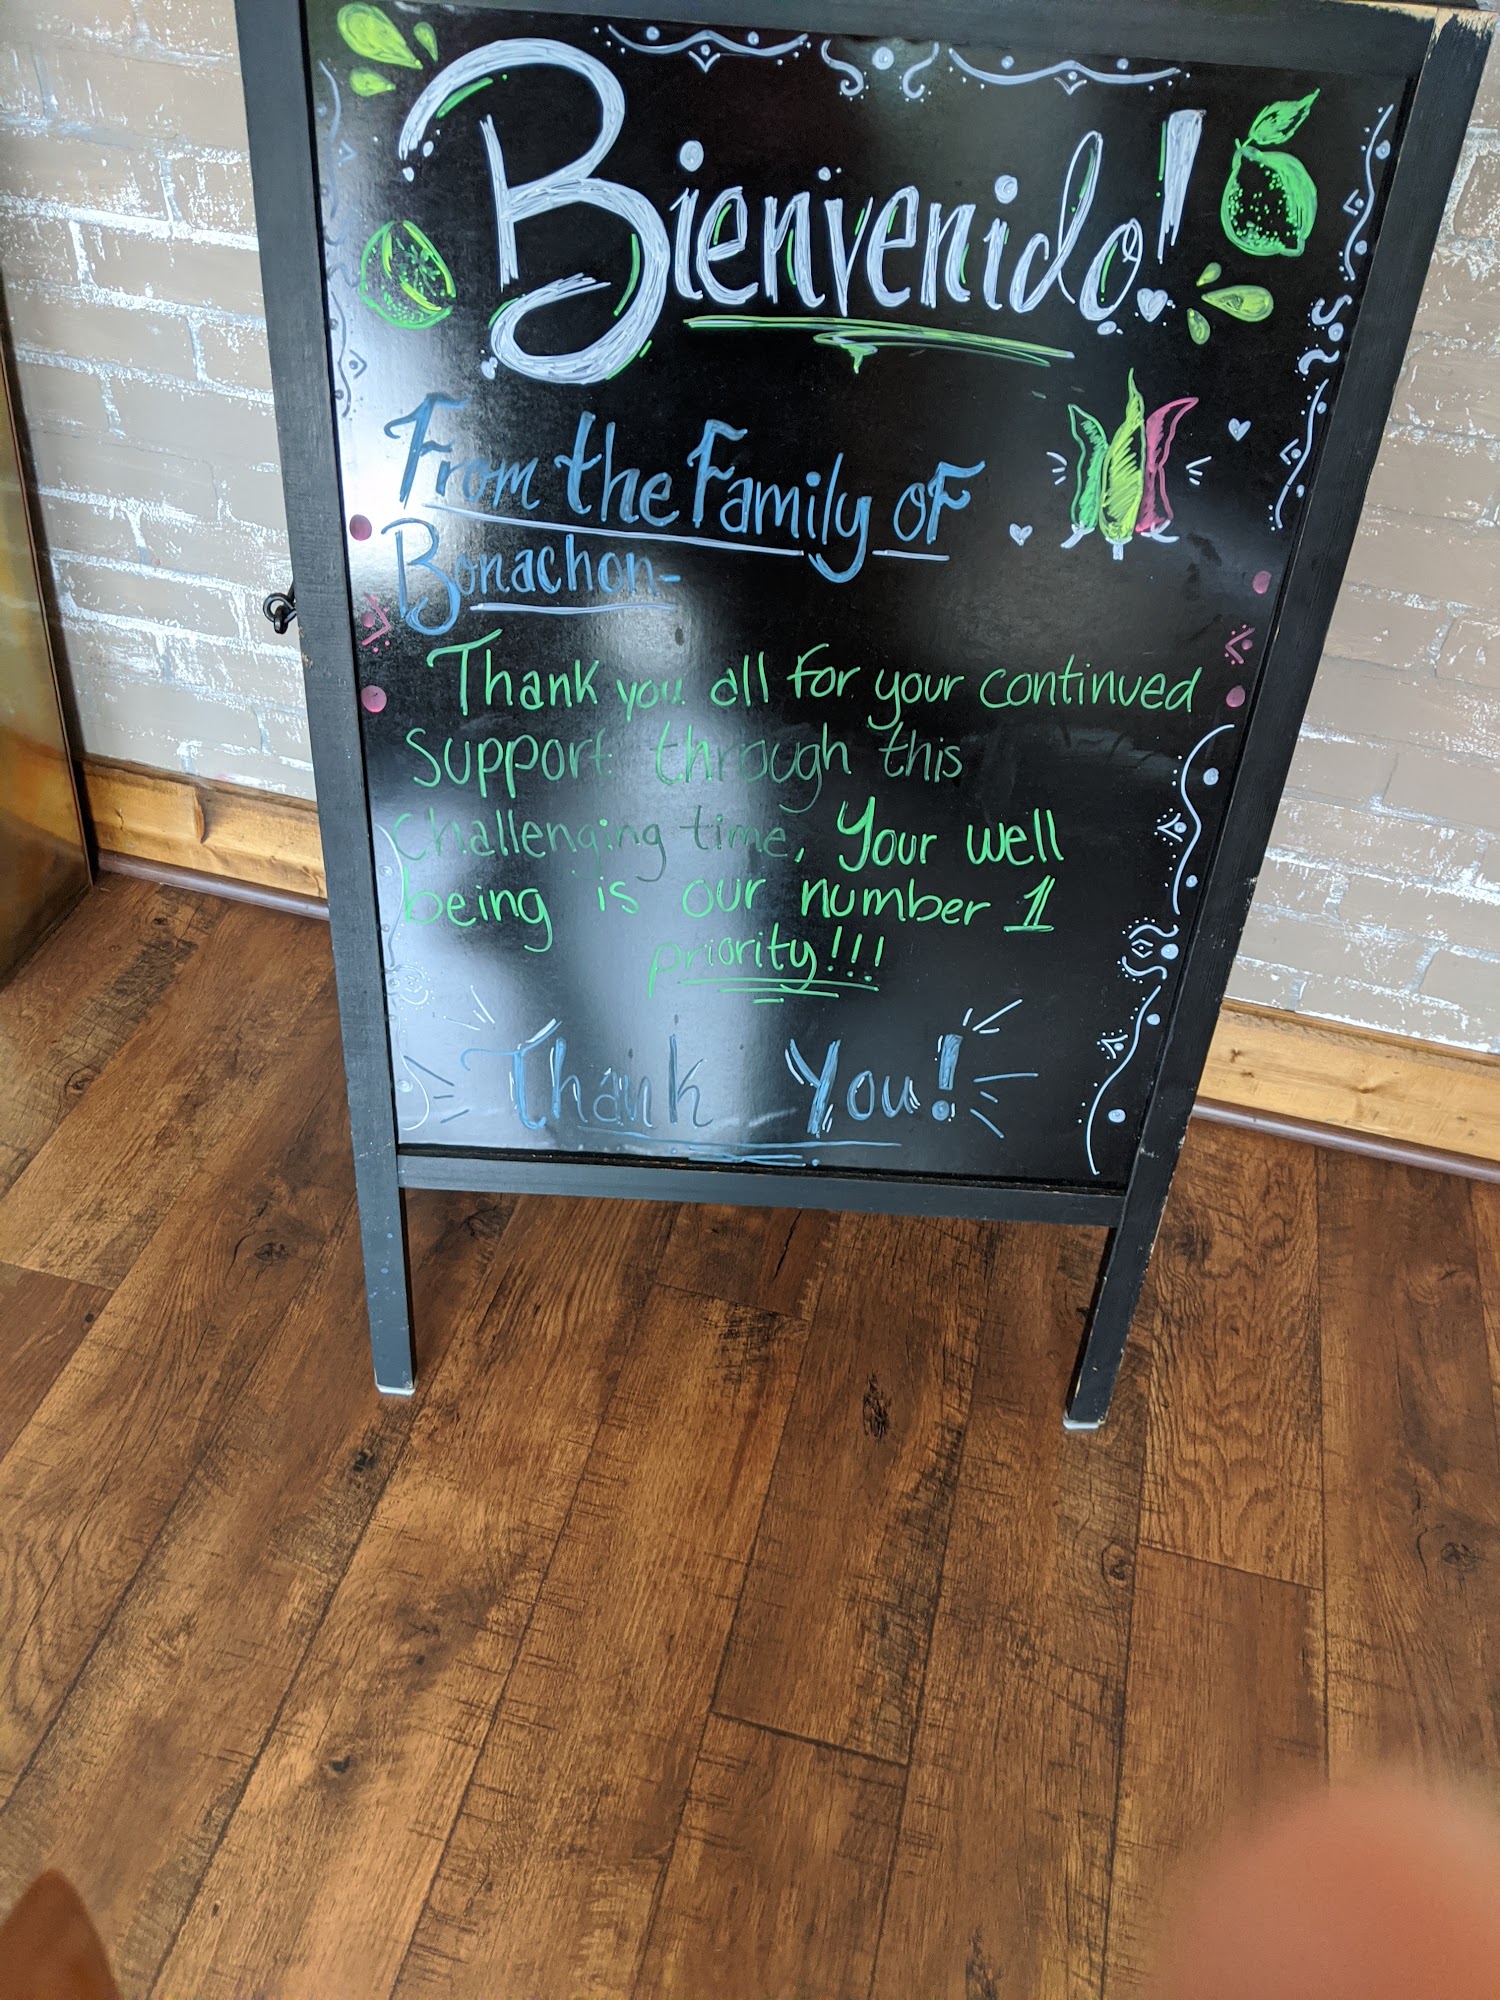 Bienvenido!
From the Family of
Bonachon-
Thank you all for your continued
support through this
challenging time, Your well
being is our number 1
priority!!!
Thank You!